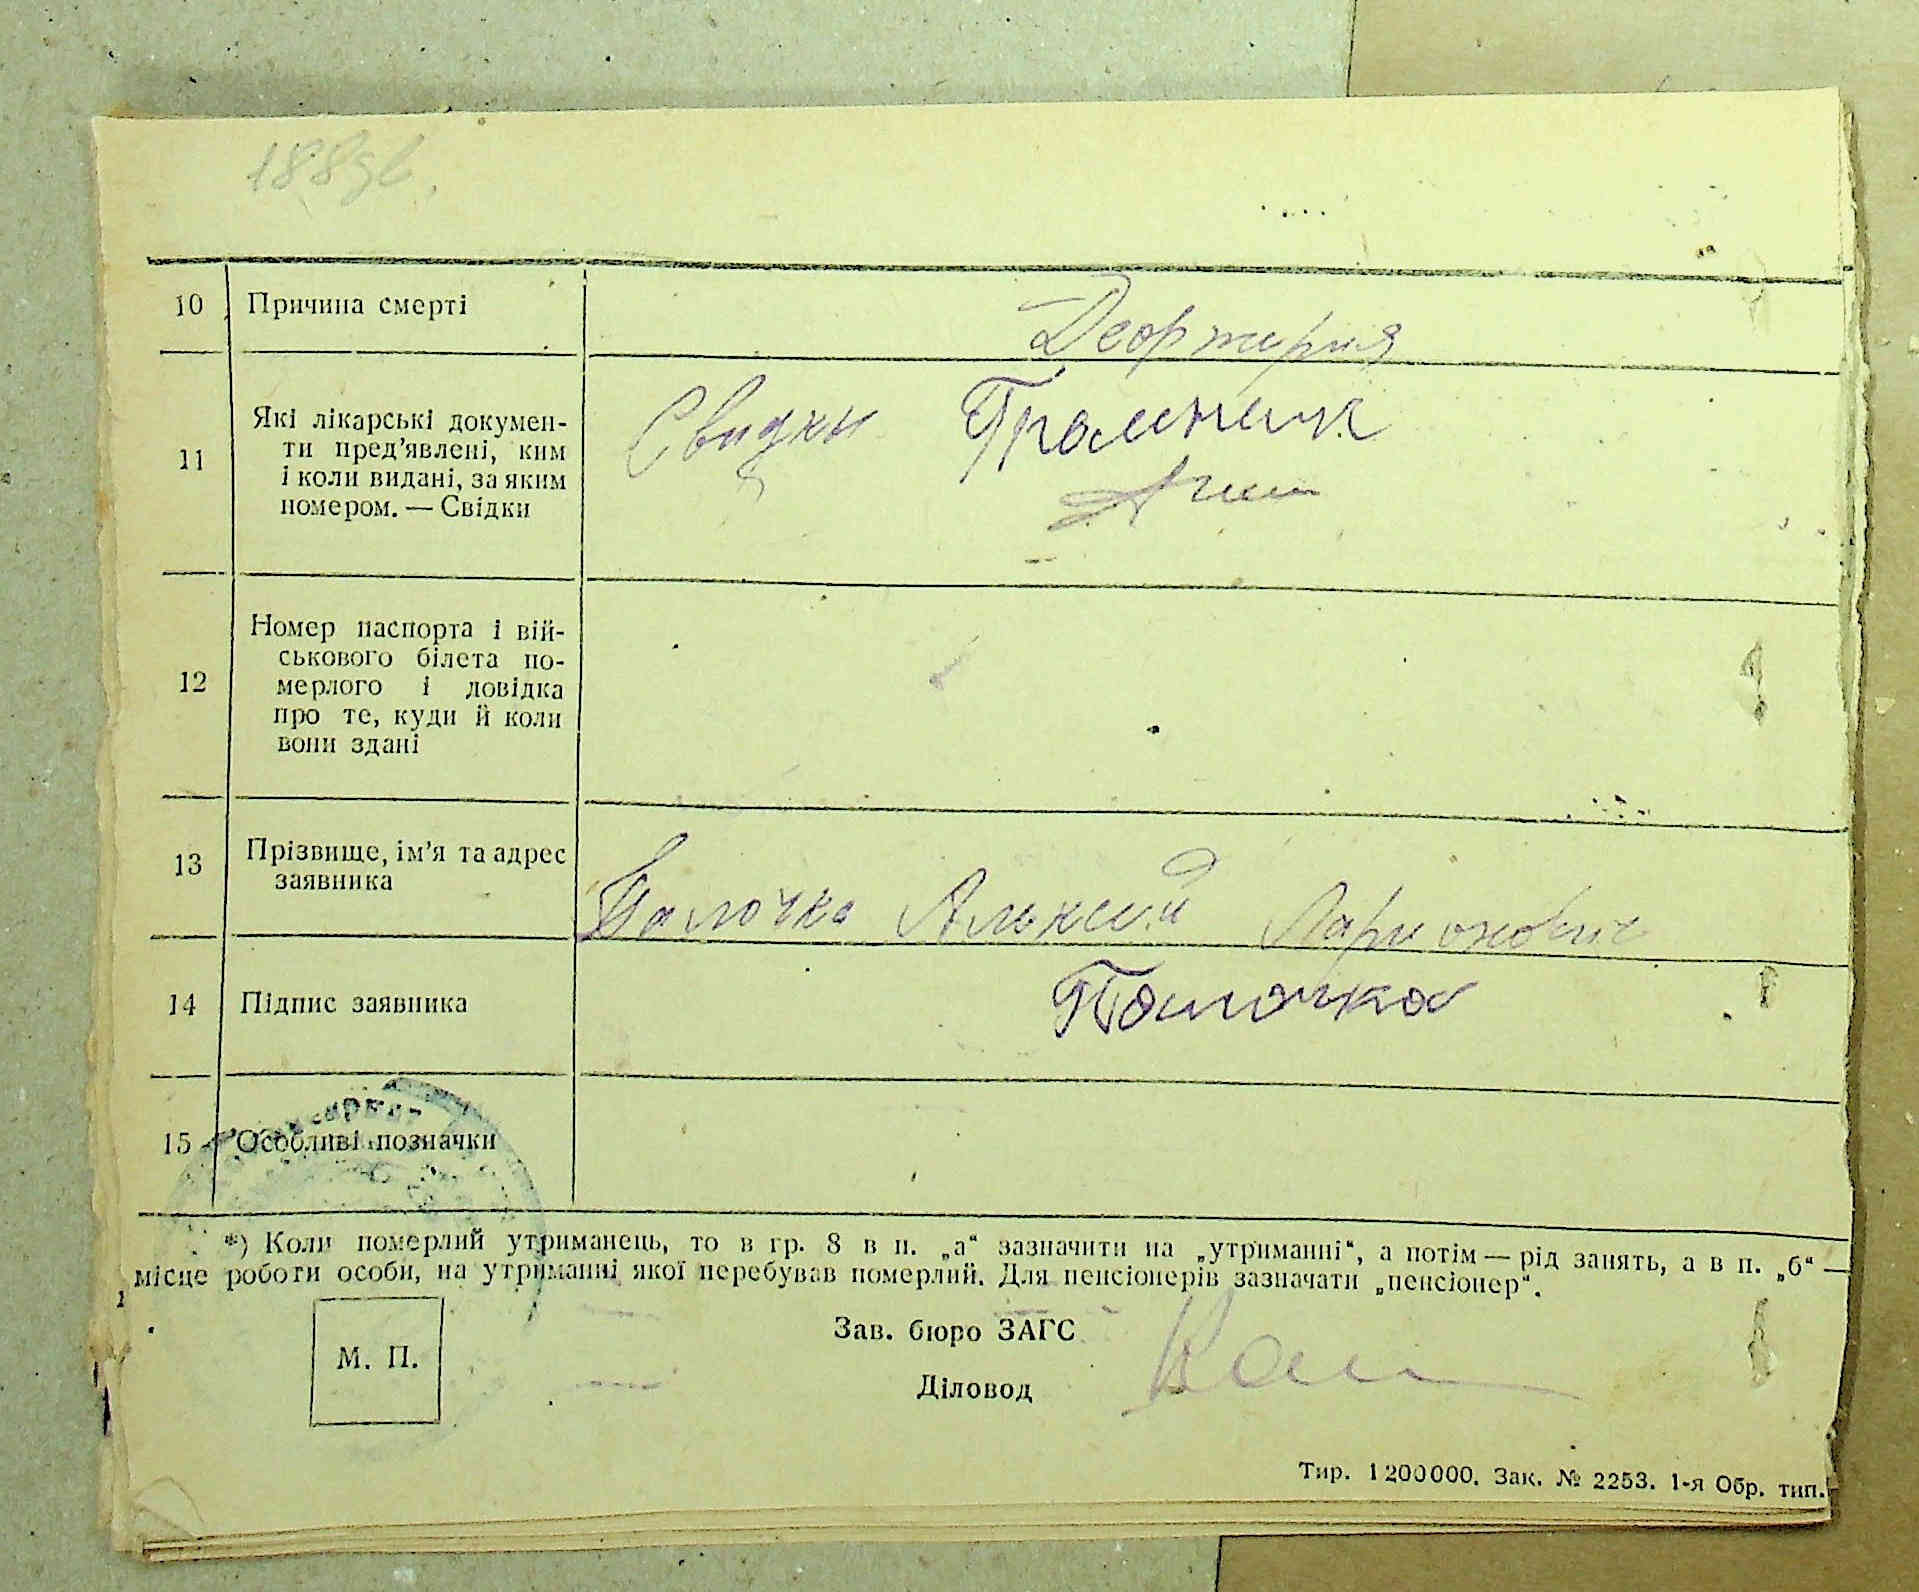 10 Причина смерті
11 Які лікарські докумен-
ти пред’явлені, ким
і коли видані, за яким
номером. — Свідки
Свидки
12 Номер паспорта і вій-
ськового білета по-
мерлого і довідка
про те, куди й коли
вони здані
13 Прізвище, ім’я та адрес
заявника
Палочка Алексий Ларионович
14 Підпис заявника
Палочка
15 Особливі позначки
*) Коли померлий утриманець, то в гр. 8 в п. „а“ зазначити на „утриманні“, а потім — рід занять, а в п. „б“ —
місце роботи особи, на утриманні якої перебував померлий. Для пенсіонерів зазначати „пенсіонер“.
М. П.
Зав. бюро ЗАГС
Діловод
Тир. 1200000. Зак. № 2253. 1-я Обр. тип.